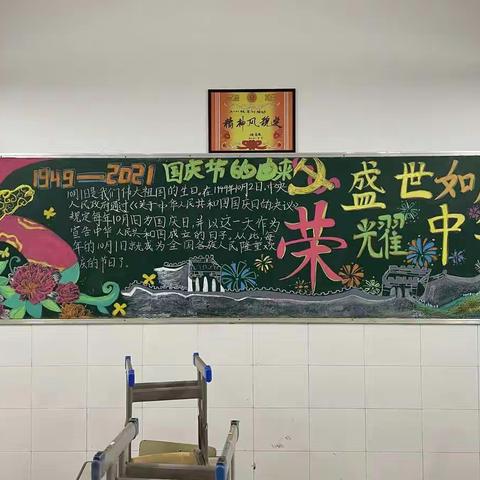 精神风貌奖
1949—2021 国庆节的由来
10月1日是我们伟大祖国的生日。在1949年10月2日,中央
人民政府通过《关于中华人民共和国国庆日的决议》
规定每年10月1日为国庆日,并以这一天作为
宣告中华人民共和国成立的日子。从此,每
年的10月1日就成为全国各族人民隆重欢
庆的节日了。
盛世如
荣耀中